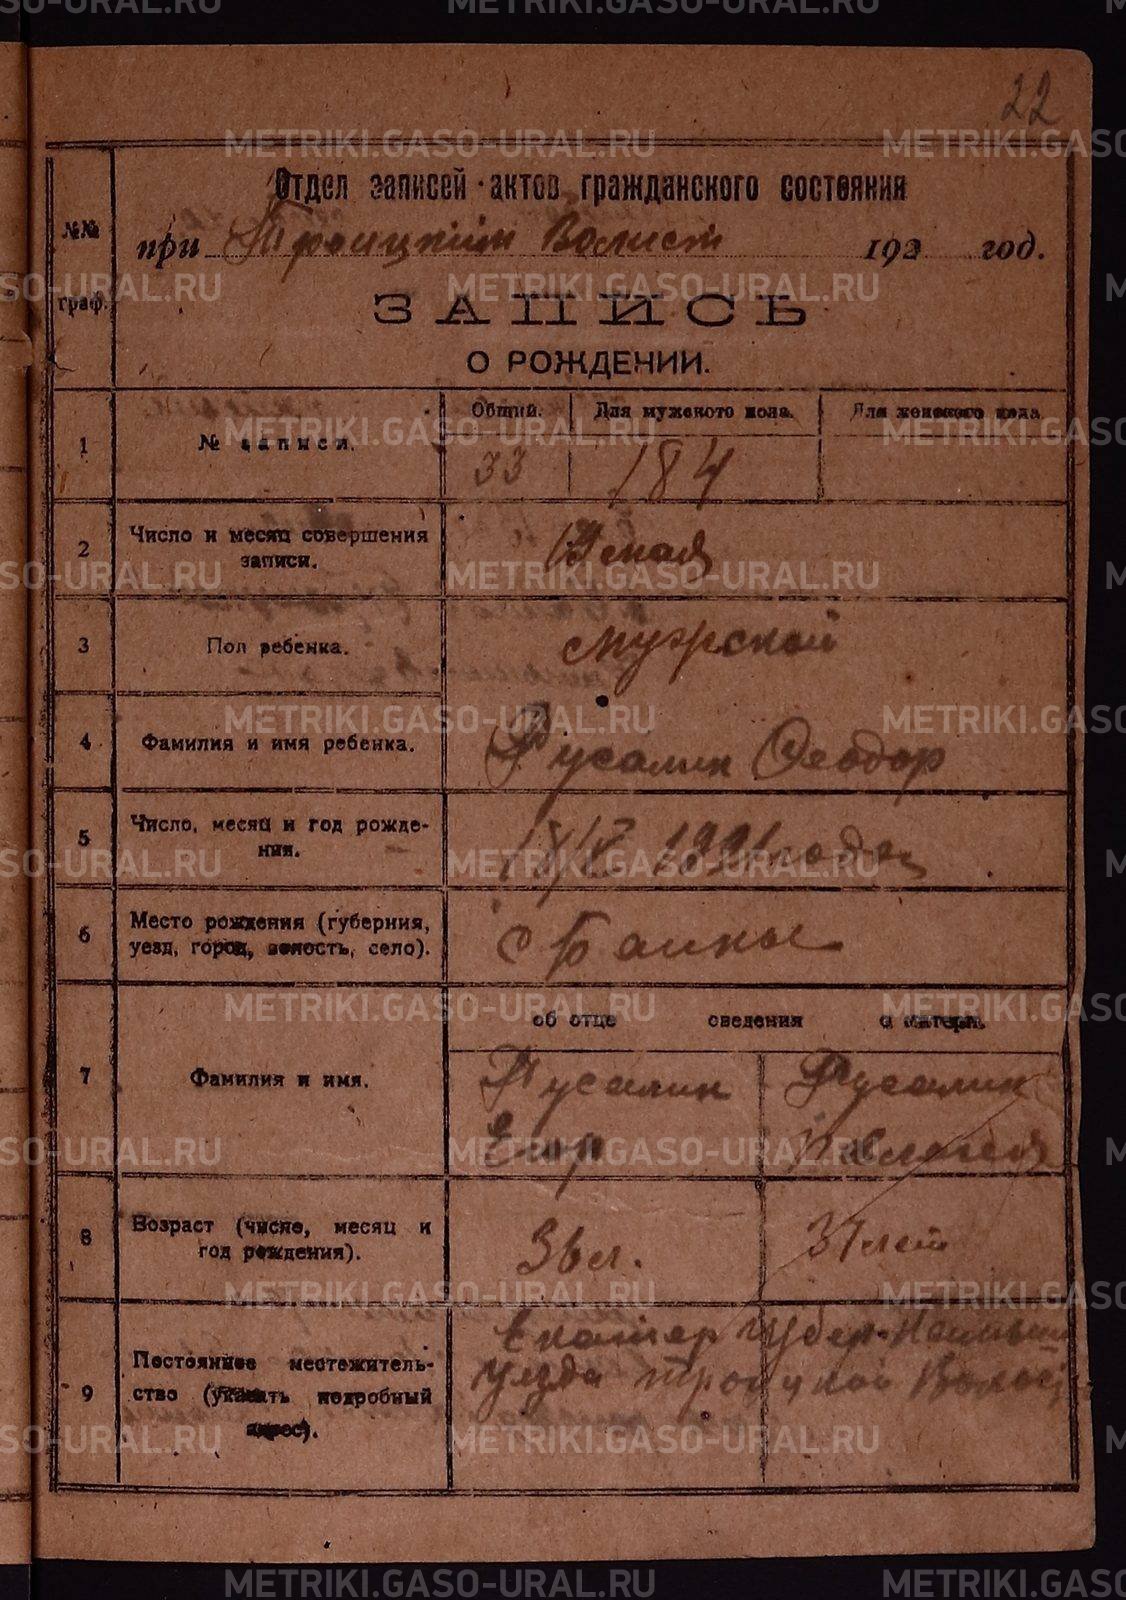 22
Отдел записей актов гражданского состояния
при Троицким Волист 192 год.
№№ граф.
ЗАПИСЬ
О РОЖДЕНИИ.
1 № записи. Общий. Для мужского пола. Для женского пола.
33 184
2 Число и месяц совершения записи. мая
3 Пол ребенка. мужской
4 Фамилия и имя ребенка. Русалин Феодор
5 Число, месяц и год рождения. 1921 года
6 Место рождения (губерния, уезд, город, волость, село). с Баины
об отце сведения о матери.
7 Фамилия и имя. Русалин Русалин
Егор
8 Возраст (число, месяц и год рождения). 36 л. 37 лет
9 Постоянное местожительство (указать подробный адрес). Екатер Губер.
Уезда Троицкой Волос
METRIKI.GASO-URAL.RU